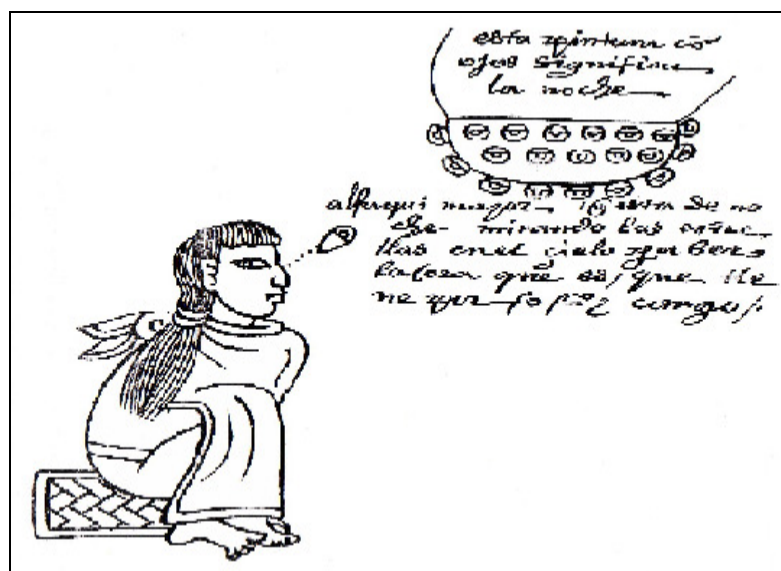 esta pintura cō
ojos significa
la noche
alfaqui mayor. de no
che mirando las estre
llas enel cielo por ver
la ora que es, que tie
ne por cargo